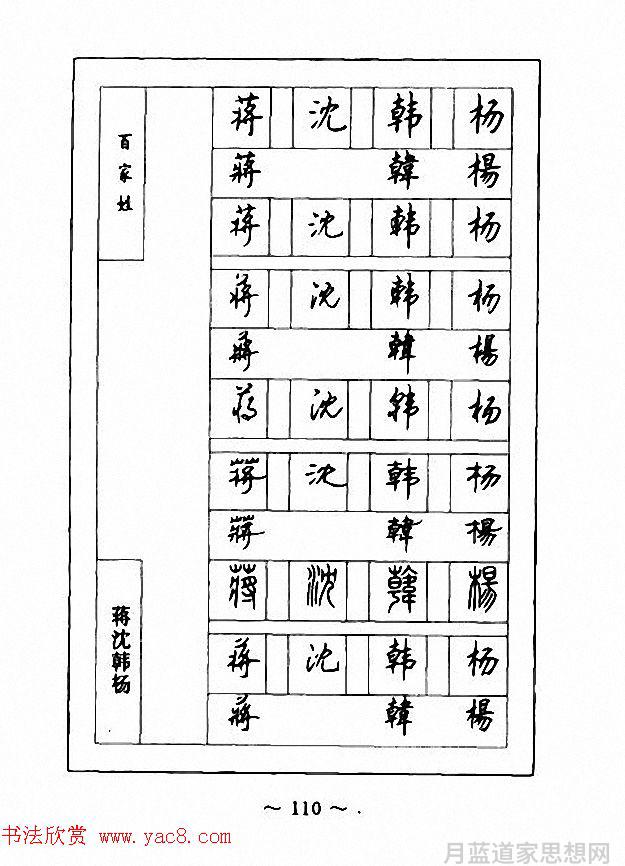 百家姓
蒋 沈 韩 杨
蔣 韓 楊
蒋 沈 韩 杨
蒋 沈 韩 杨
蔣 韓 楊
蒋 沈 韩 杨
蒋 沈 韩 杨
蔣 韓 楊
蔣 沈 韓 楊
蒋 沈 韩 杨
蔣 韓 楊
蒋沈韩杨
~ 110 ~ .
书法欣赏 www.yac8.com
月蓝道家思想网